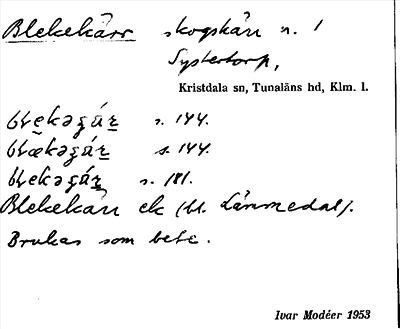 Blekekärr skogskärr n. 1
Systertorp,
Kristdala sn, Tunaläns hd, Klm. l.
s. 144.
s. 144.
s. 181.
Blekekärr ek (bl. Lånmedal).
Brukas som bete.
Ivar Modéer 1953